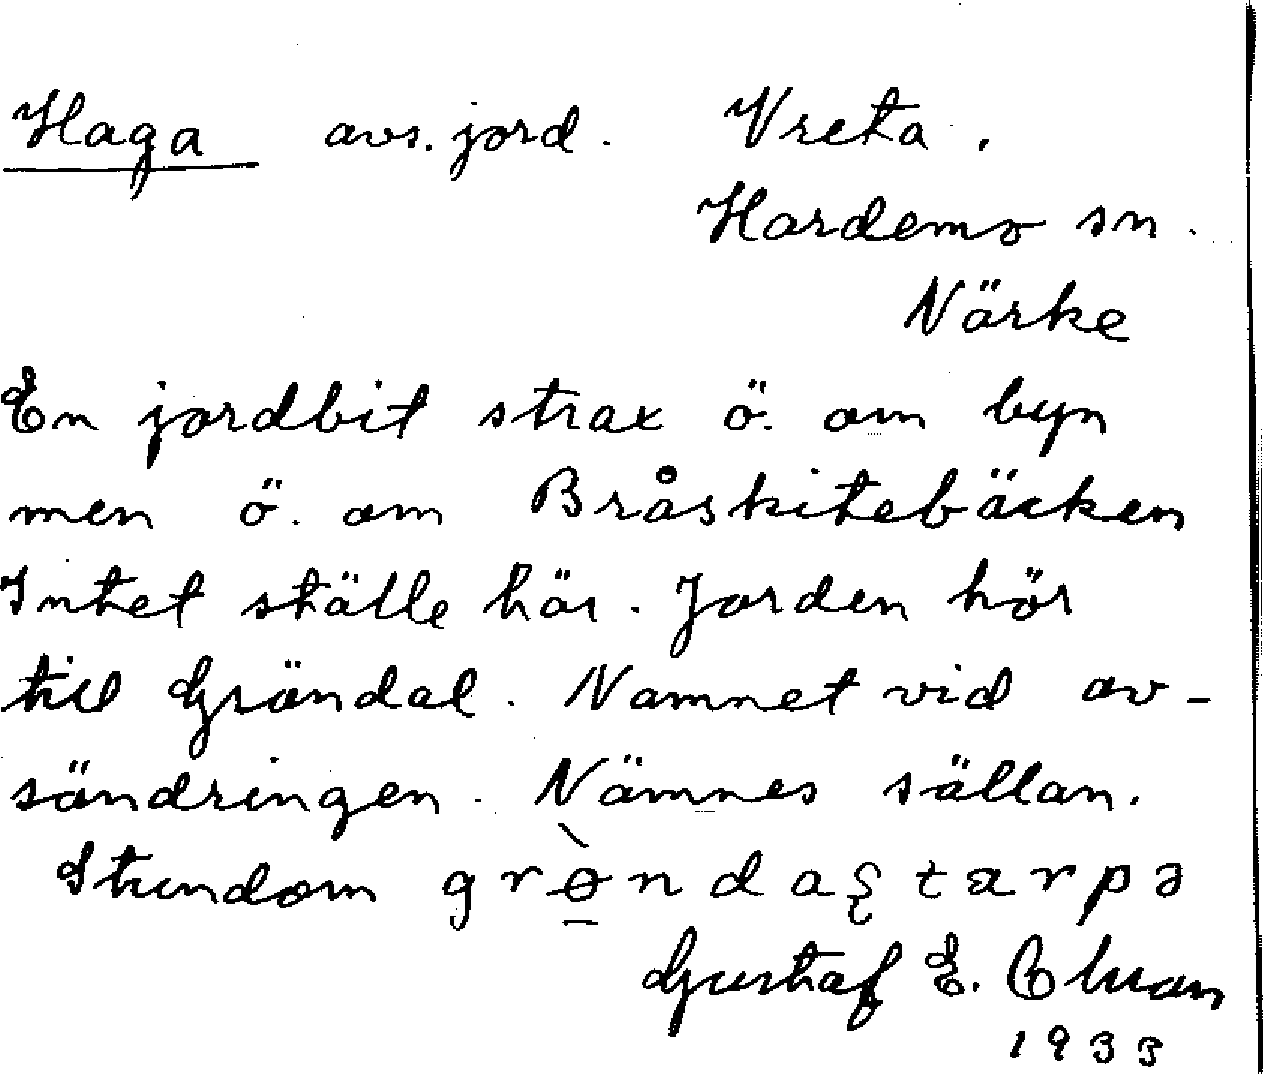 Haga avs. jord. Vreta.
Hardemo sn.
Närke
En jordbit strax ö. om byn
men ö. om Bråskitebäcken
Intet ställe här. Jorden hör
till Gröndal. Namnet vid av-
söndringen. Nämnes sällan.
Stundom
Gustaf E.
1933